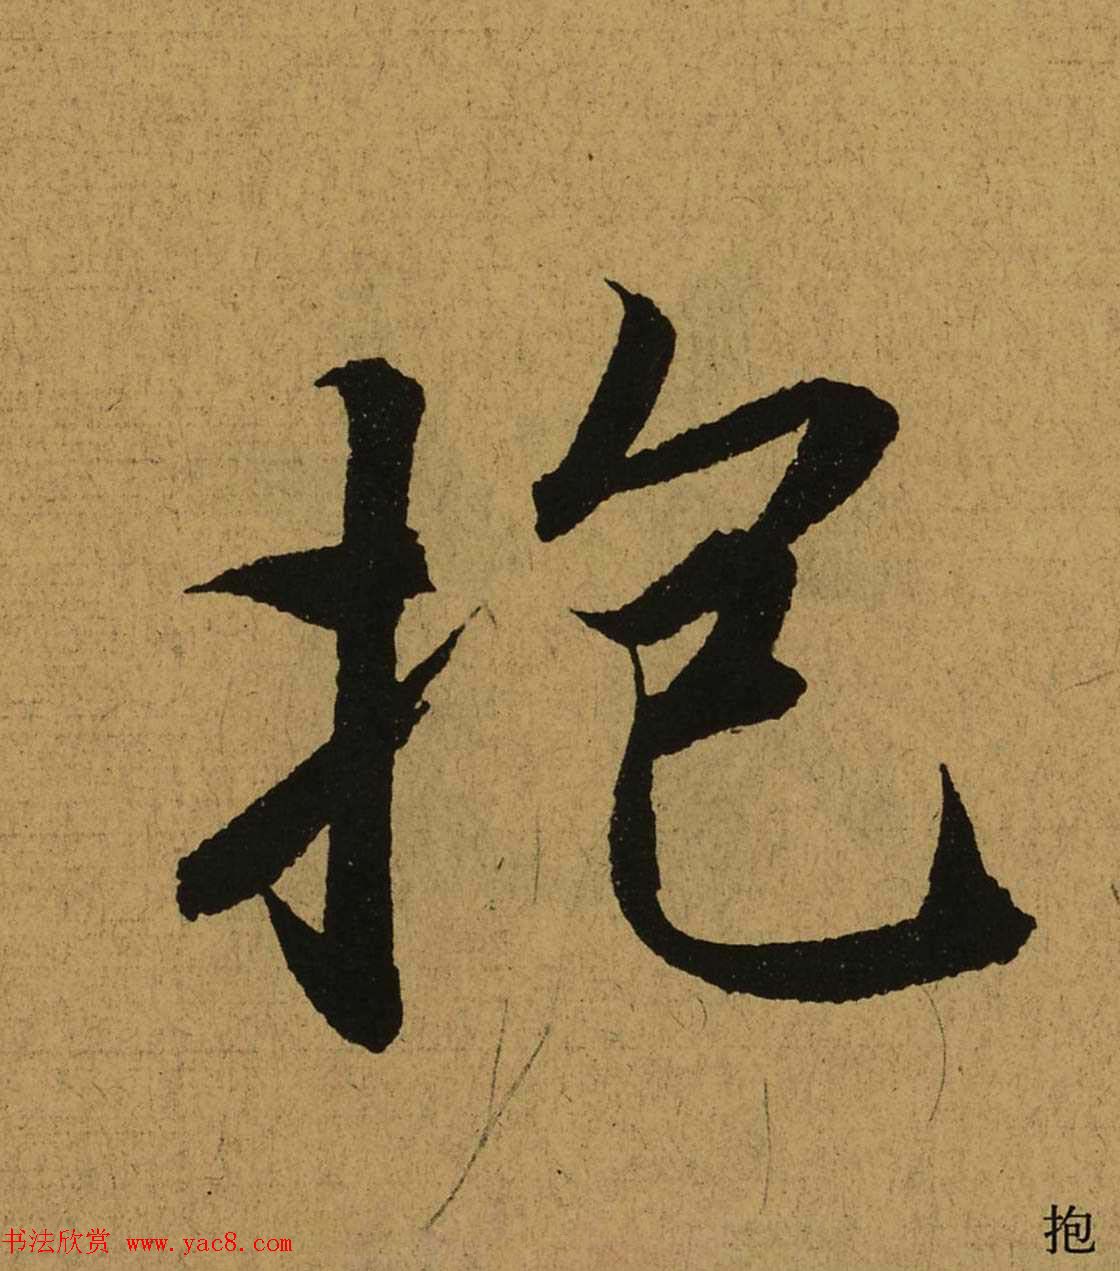 抱
抱
书法欣赏 www.yac8.com